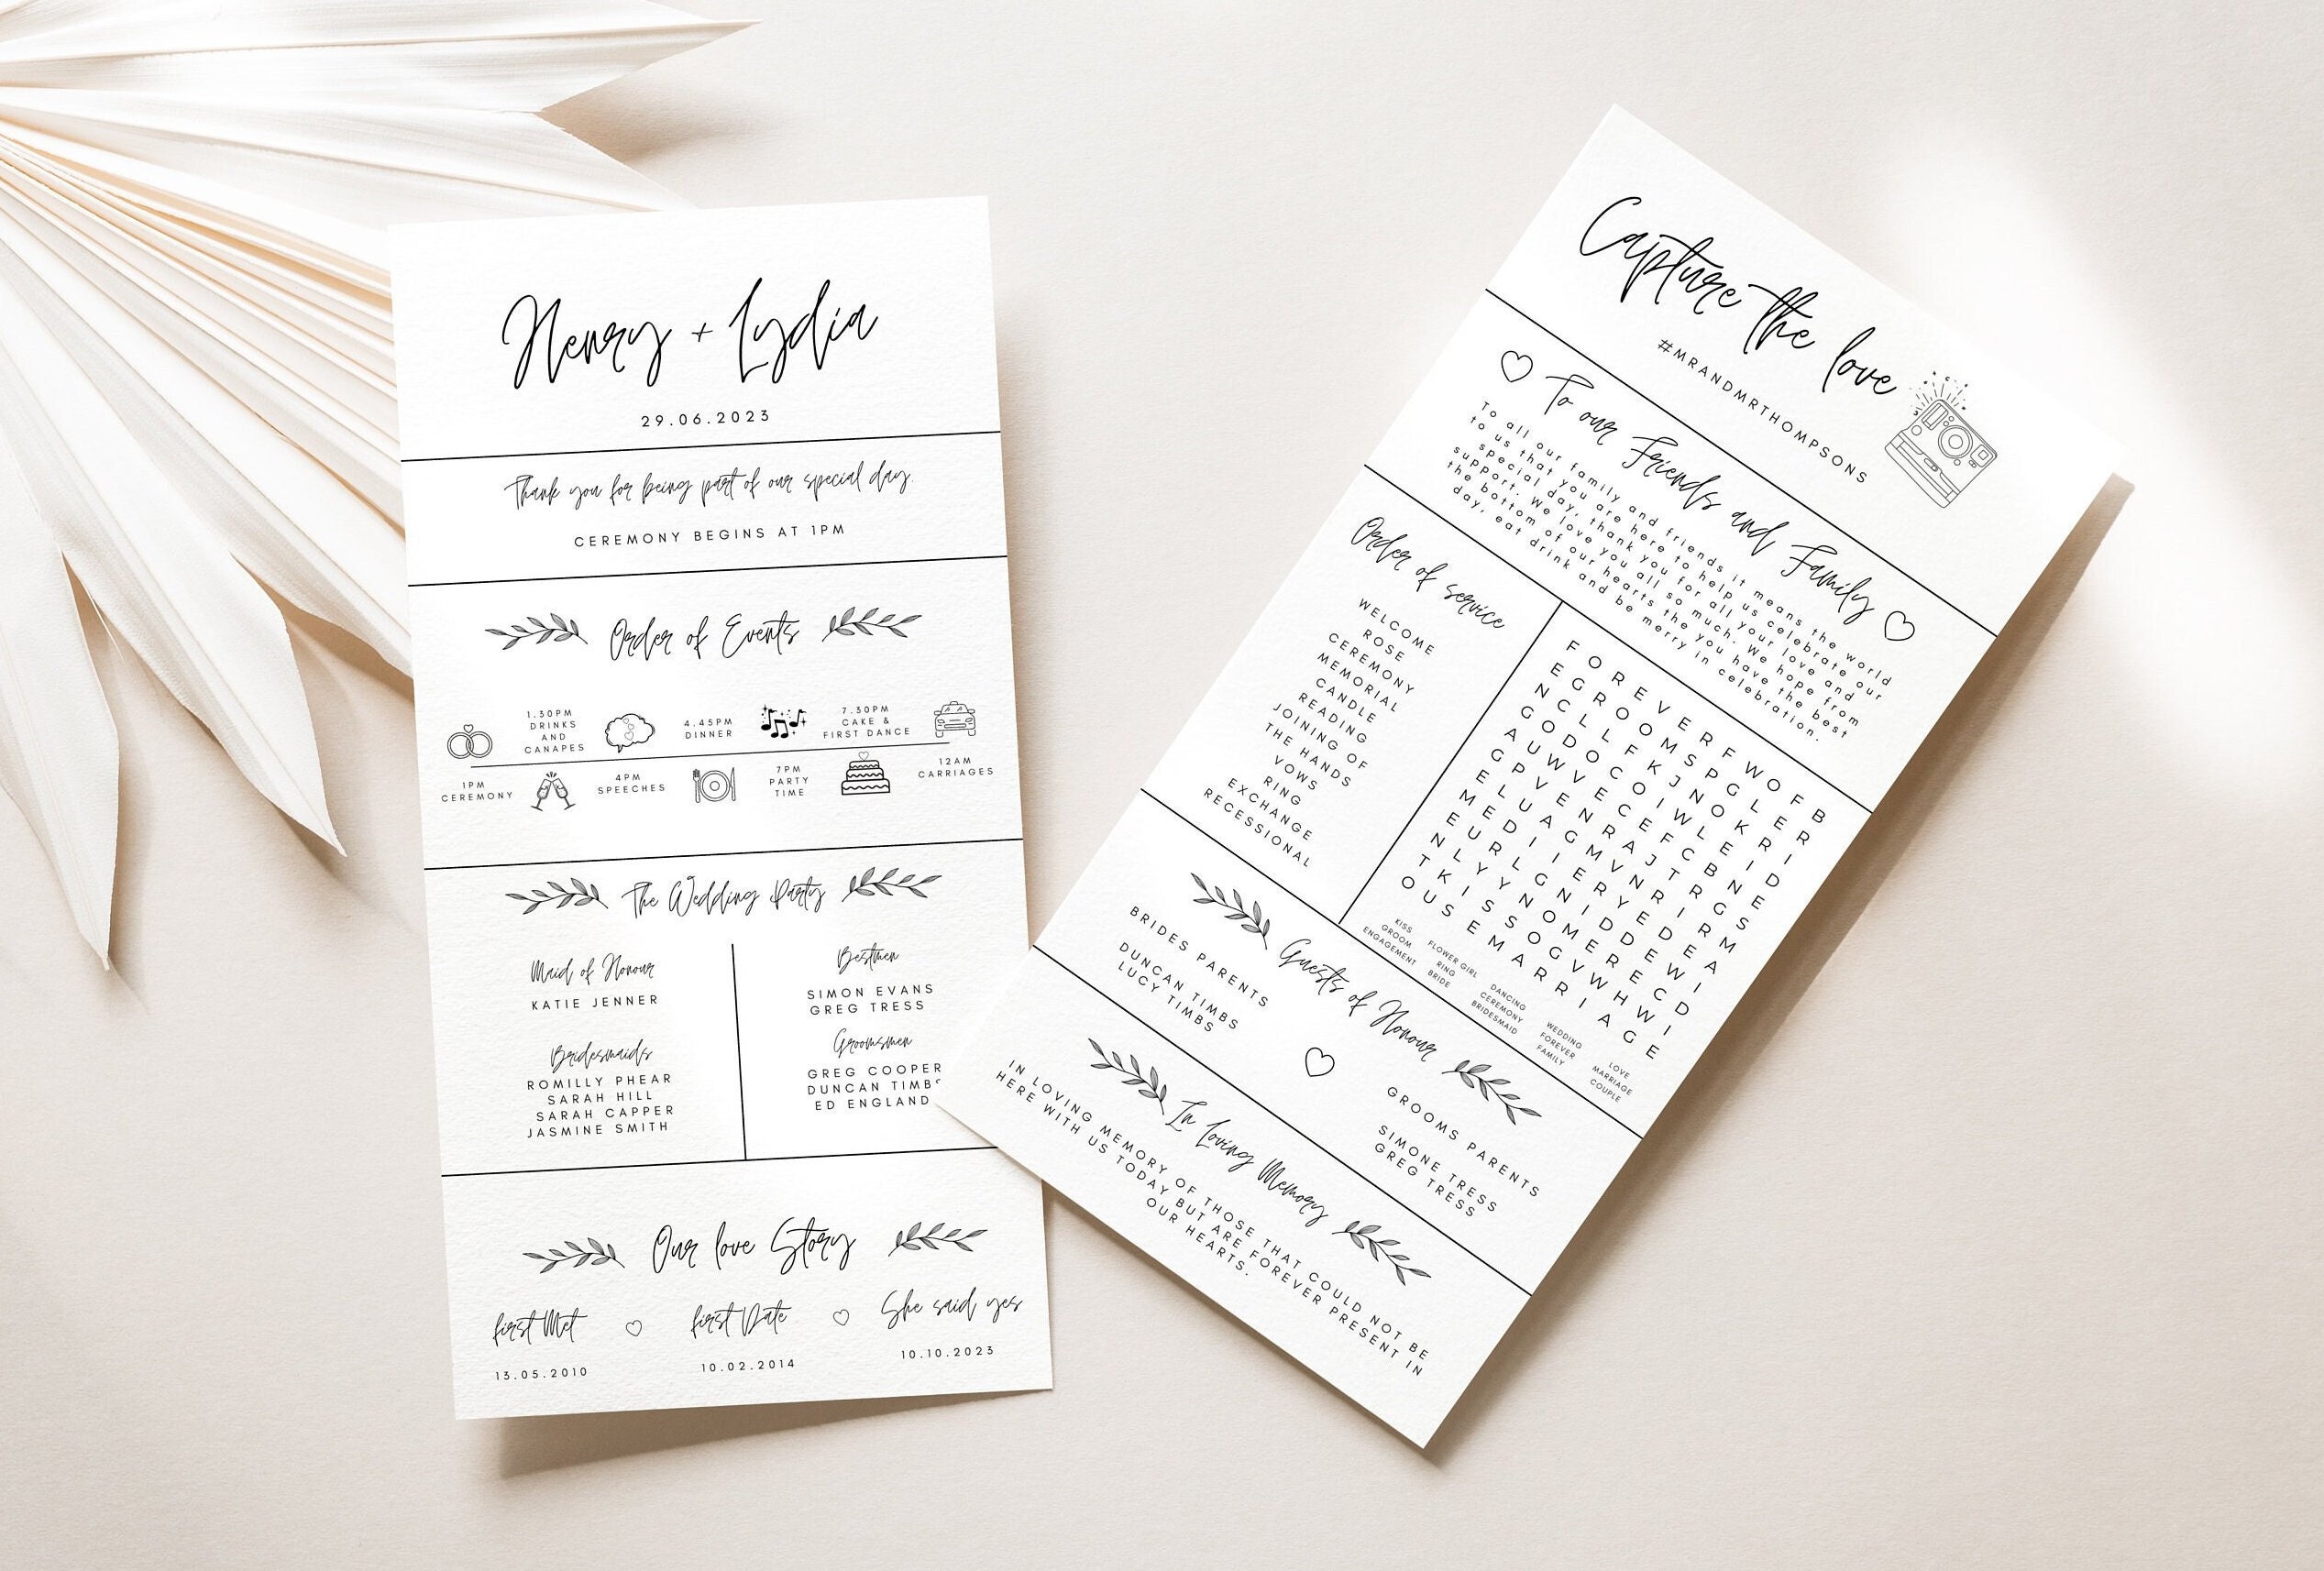 Henry + Lydia
29.06.2023
Thank you for being part of our special day.
CEREMONY BEGINS AT 1PM
Order of Events
1PM
CEREMONY
1.30PM
DRINKS
AND
CANAPES
4PM
SPEECHES
4.45PM
DINNER
7PM
PARTY
TIME
7.30PM
CAKE &
FIRST DANCE
12AM
CARRIAGES
The Wedding Party
Maid of Honour
KATIE JENNER
Bridesmaids
ROMILLY PHEAR
SARAH HILL
SARAH CAPPER
JASMINE SMITH
Bestmen
SIMON EVANS
GREG TRESS
Groomsmen
GREG COOPER
DUNCAN TIMBS
ED ENGLAND
Our love Story
first Met
13.05.2010
first Date
10.02.2014
She said yes
10.10.2023
Capture the love
#MRANDMRTHOMPSONS
To our Friends and Family
To all our family and friends it means the world
to us that you are here to help us celebrate our
special day, thank you for all your love and
support. We love you all so much. We hope from
the bottom of our hearts the you have the best
day, eat drink and be merry in celebration.
Order of service
WELCOME
ROSE
CEREMONY
MEMORIAL
CANDLE
READING
JOINING OF
THE HANDS
VOWS
RING
EXCHANGE
RECESSIONAL
F O R E V E R F W O F B
E G R O O M S P G L E R
N C L L F K J N O K R I
G O D O C O I W L E I D
A U W V E C E F C B N E
G P V E N R A J T R G S
E L U A G M V N R I R M
M E D I I E R Y E D E A
E U R L G N I D D E W I
N L Y Y N O M E R E C D
T K I S S O G V W H W I
O U S E M A R R I A G E
KISS
GROOM
ENGAGEMENT
FLOWER GIRL
RING
BRIDE
DANCING
CEREMONY
BRIDESMAID
WEDDING
FOREVER
FAMILY
LOVE
MARRIAGE
COUPLE
Guests of Honour
BRIDES PARENTS
DUNCAN TIMBS
LUCY TIMBS
GROOMS PARENTS
SIMONE TRESS
GREG TRESS
In Loving Memory
IN LOVING MEMORY OF THOSE THAT COULD NOT BE
HERE WITH US TODAY BUT ARE FOREVER PRESENT IN
OUR HEARTS.